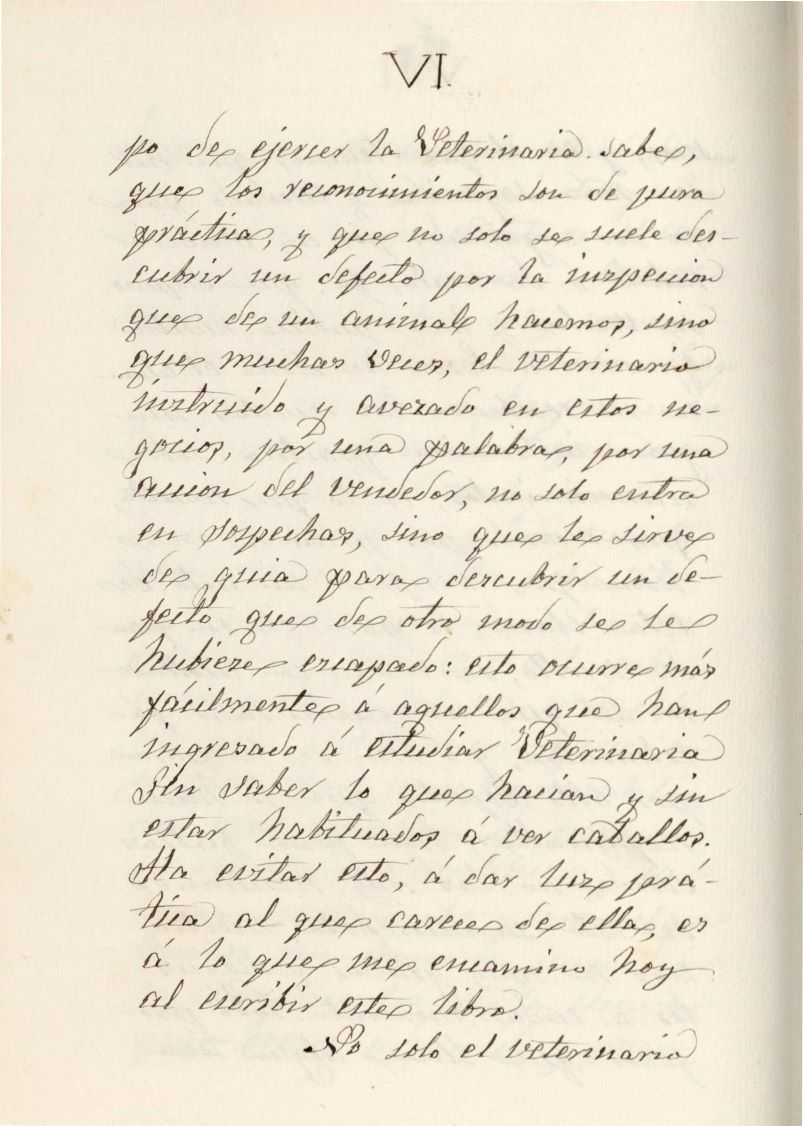 VI.
po de ejercer la Veterinaria sabe,
que los reconocimientos son de pura
práctica, y que no solo se suele des-
cubrir un defecto por la inspeccion
que de un animal hacemos, sino
que muchas veces, el veterinario
instruido y avezado en estos ne-
gocios, por una palabra, por una
accion del vendedor, no solo entra
en sospechas, sino que le sirve
de guia para descubrir un de-
fecto que de otro modo se le
hubiese escapado: esto ocurre más
fácilmente á aquellos que han
ingresado á estudiar Veterinaria
sin saber lo que hacian y sin
estar habituados á ver caballos.
Ha evitar esto, á dar luz prá-
tica al que carece de ella, es
á lo que me encamino hoy
al escribir este libro.
No solo el veterinario